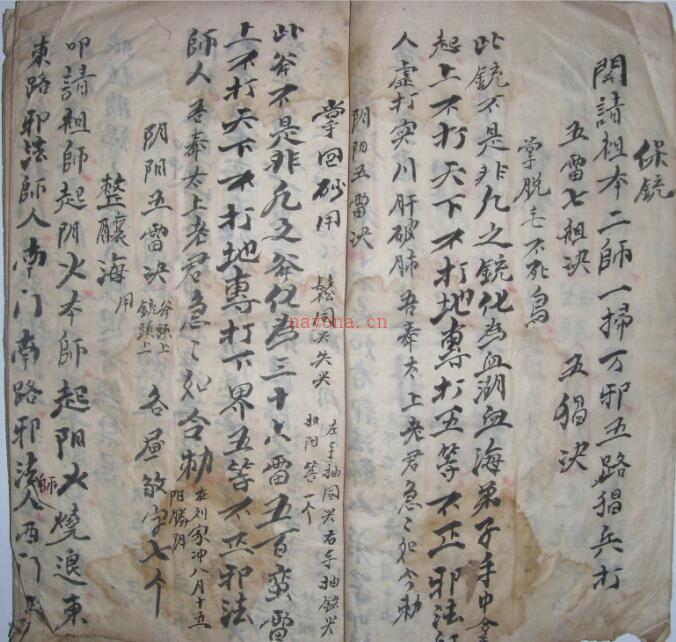 保銃
開請祖本二師一掃万邪五路猖兵打
五雷七祖决 五猖决
掌脱毛不死鳥
此銃不是非凡之銃化為血湖血海弟子手中
起上不打天下不打地專打五等不正邪法師
人虛打实川肝破肺 吾奉太上老君急〻如令勅
阴阳五雷决
掌回砂用
左手抽同尖右手抽錄尖
和阳 一个
此斧不是非凡之斧化為三十六雷五百蛮雷
上不打天下不打地專打下界五等不正邪法
師人 吾奉太上老君急〻如令勅
在刘家冲八月十五
阳勝阴
阴阳五雷决 斧頭上 銃頭上 各 字七个
整 海 用
叩請祖師起阴火本師起阳火燒退東
東路邪法師人南门南路邪法師人西门
nayona.cn